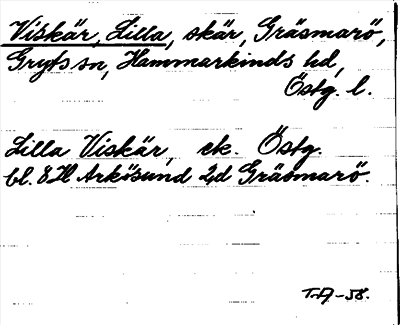 Viskär, Lilla, skär, Gräsmarö,
Gryts sn, Hammarkinds hd,
Östg. l.
Lilla Viskär, ek. Östg.
bl. 8H Arkösund 2d Gräsmarö.
-58.